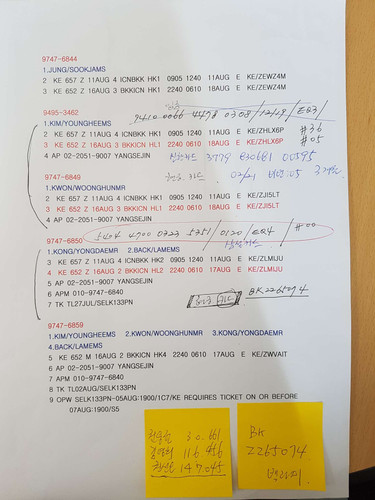 9747-6844
1.JUNG/SOOKJAMS
2 KE 657 Z 11AUG 4 ICNBKK HK1 0905 1240 11AUG E KE/ZEWZ4M
3 KE 658 Z 16AUG 3 BKKICN HK1 2240 0610 18AUG E KE/ZEWZ4M
9495-3462
9410 0066 4498 0308/12/19/EQ3/
1.KIM/YOUNGHEEMS
2 KE 657 Z 11AUG 4 ICNBKK HK1 0905 1240 11AUG E KE/ZHLX6P #36
3 KE 658 Z 16AUG 3 BKKICN HL1 2240 0610 18AUG E KE/ZHLX6P #05
4 AP 02-2051-9007 YANGSEJIN 3779 830661 00595
9747-6849
1.KWON/WOONGHUNMR
2 KE 657 Z 11AUG 4 ICNBKK HK1 0905 1240 11AUG E KE/ZJI5LT
3 KE 658 Z 16AUG 3 BKKICN HL1 2240 0610 18AUG E KE/ZJI5LT
4 AP 02-2051-9007 YANGSEJIN
9747-6850
5404 4700 0323 5251/0120/EQ4/#00
1.KONG/YONGDAEMR 2.BACK/LAMEMS
3 KE 657 Z 11AUG 4 ICNBKK HK2 0905 1240 11AUG E KE/ZLMIJU
4 KE 658 Z 16AUG 2 BKKICN HL2 2240 0610 17AUG E KE/ZLMIJU
5 AP 02-2051-9007 YANGSEJIN
6 APM 010-9747-6840
BK2265074
7 TK TL27JUL/SELK133PN
9747-6859
1.KIM/YOUNGHEEMS 2.KWON/WOONGHUNMR 3.KONG/YONGDAEMR
4.BACK/LAMEMS
5 KE 652 M 16AUG 2 BKKICN HK4 2240 0610 17AUG E KE/ZWVAIT
6 AP 02-2051-9007 YANGSEJIN
7 APM 010-9747-6840
8 TK TL02AUG/SELK133PN
9 OPW SELK133PN-05AUG:1900/1C7/KE REQUIRES TICKET ON OR BEFORE
07AUG:1900/S5
30.661
116 456
147.045
BK
2265074